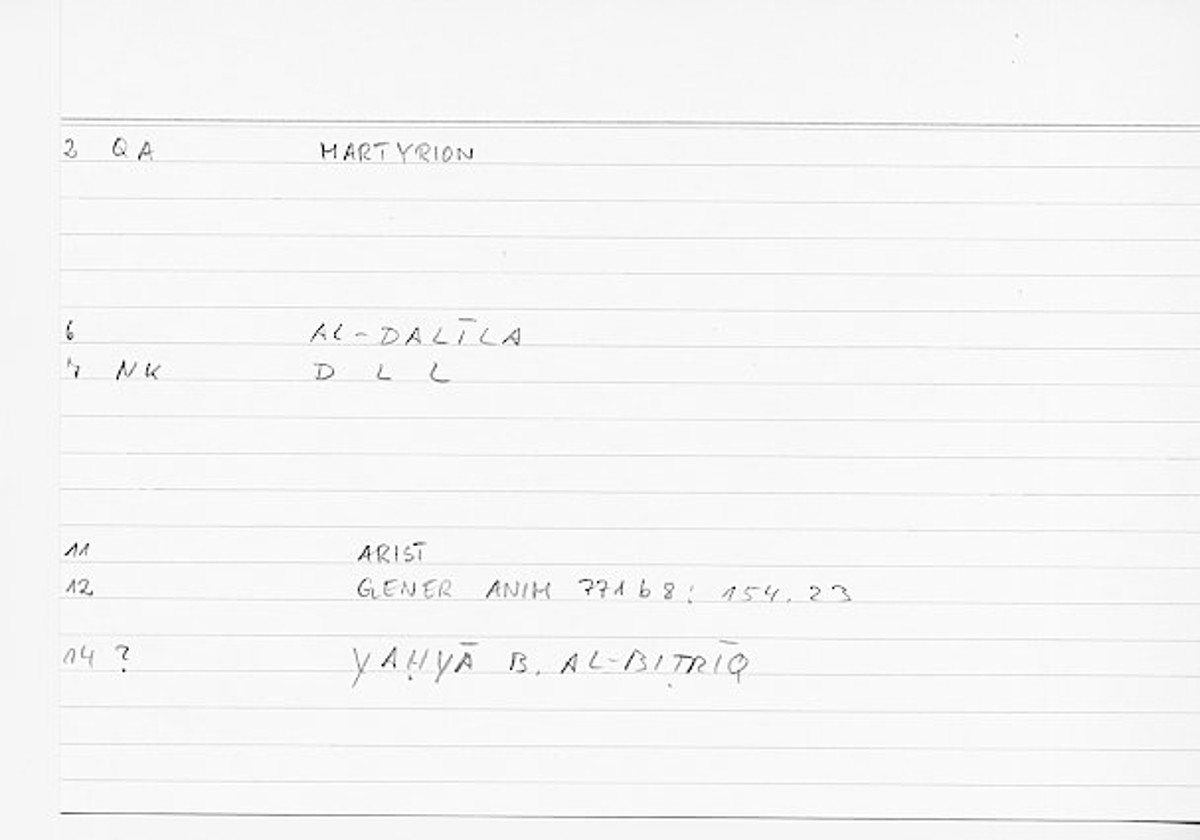 2 QA MARTYRION
6 AL-DALĪLA
7 NK D L L
11 ARIST
12 GENER ANIM 771 b 8 : 154.23
14 ? YAḤYĀ B. AL-BIṬRĪQ